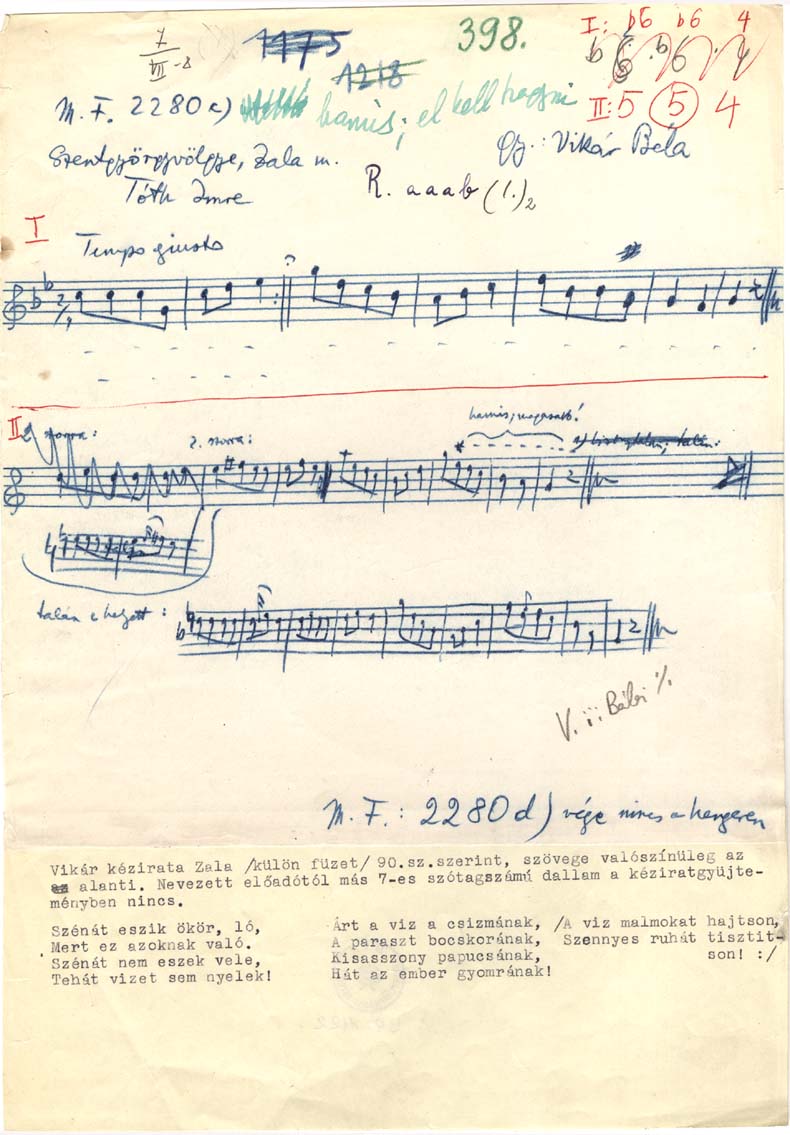 7
VII-8
1175
1218
398.
I: b6 b6 4
b 6 b6 4
II: 5 5 4
M. F. 2280 c) hamis; el kell hagyni
Gy.: Vikár Béla
Szentgyörgyvölgye, Zala m.
Tóth Imre
R. a a a b (1.)2
I
Tempo giusto
2/4
hamis; magasabb!
II
2. strófa:
2. strófa:
talán e helyett:
V. ... Bébi %
M. F.: 2280 d) vége nincs a hengeren
Vikár kézirata Zala /külön füzet/ 90.sz.szerint, szövege valószinüleg az
az alanti. Nevezett előadótól más 7-es szótagszámú dallam a kéziratgyüjte-
ményben nincs.
Szénát eszik ökör, ló,
Mert ez azoknak való.
Szénát nem eszek vele,
Tehát vizet sem nyelek!
Árt a viz a csizmának,
A paraszt bocskorának,
Kisasszony papucsának,
Hát az ember gyomrának!
/A viz malmokat hajtson,
Szennyes ruhát tisztit-
son! :/